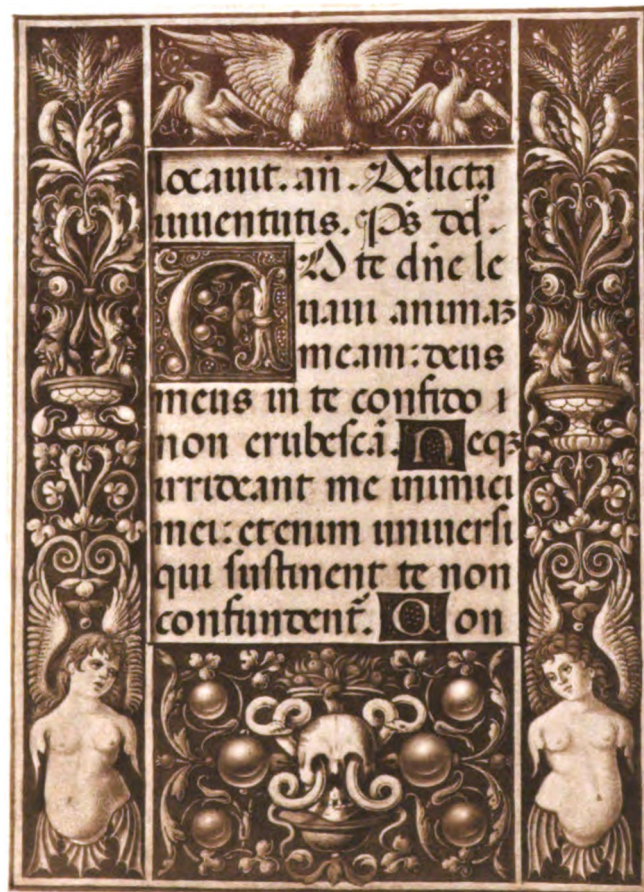 locauit. an̄. Delicta
iuuentutis. Ps̄ dd̄.
AD te dn̄e le
uaui animaʒ
meam: deus
meus in te confido ⁊
non erubescā. Neqʒ
irrideant me inimici
mei: etenim uniuersi
qui sustinent te non
confundent᷑. Con